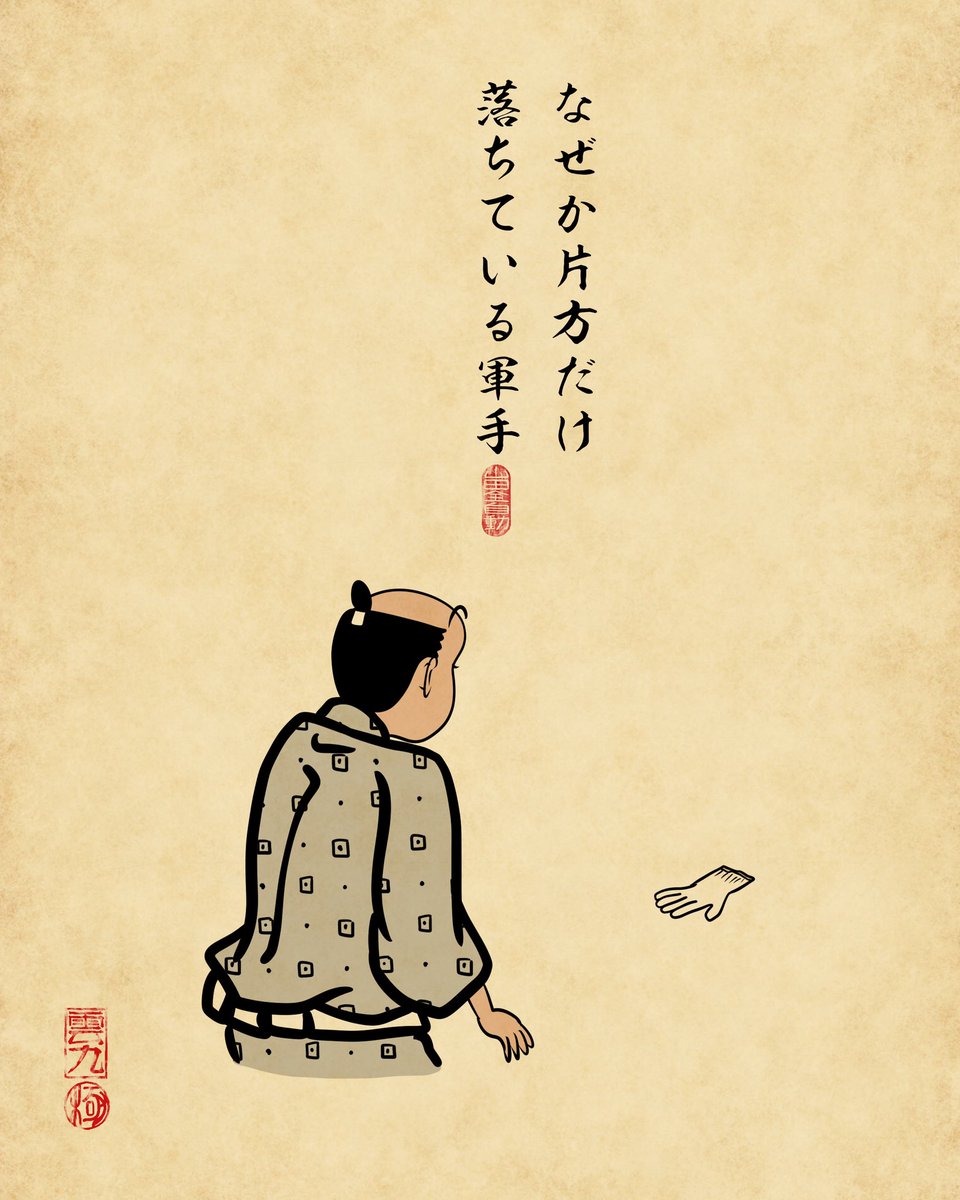 なぜか片方だけ
落ちている軍手